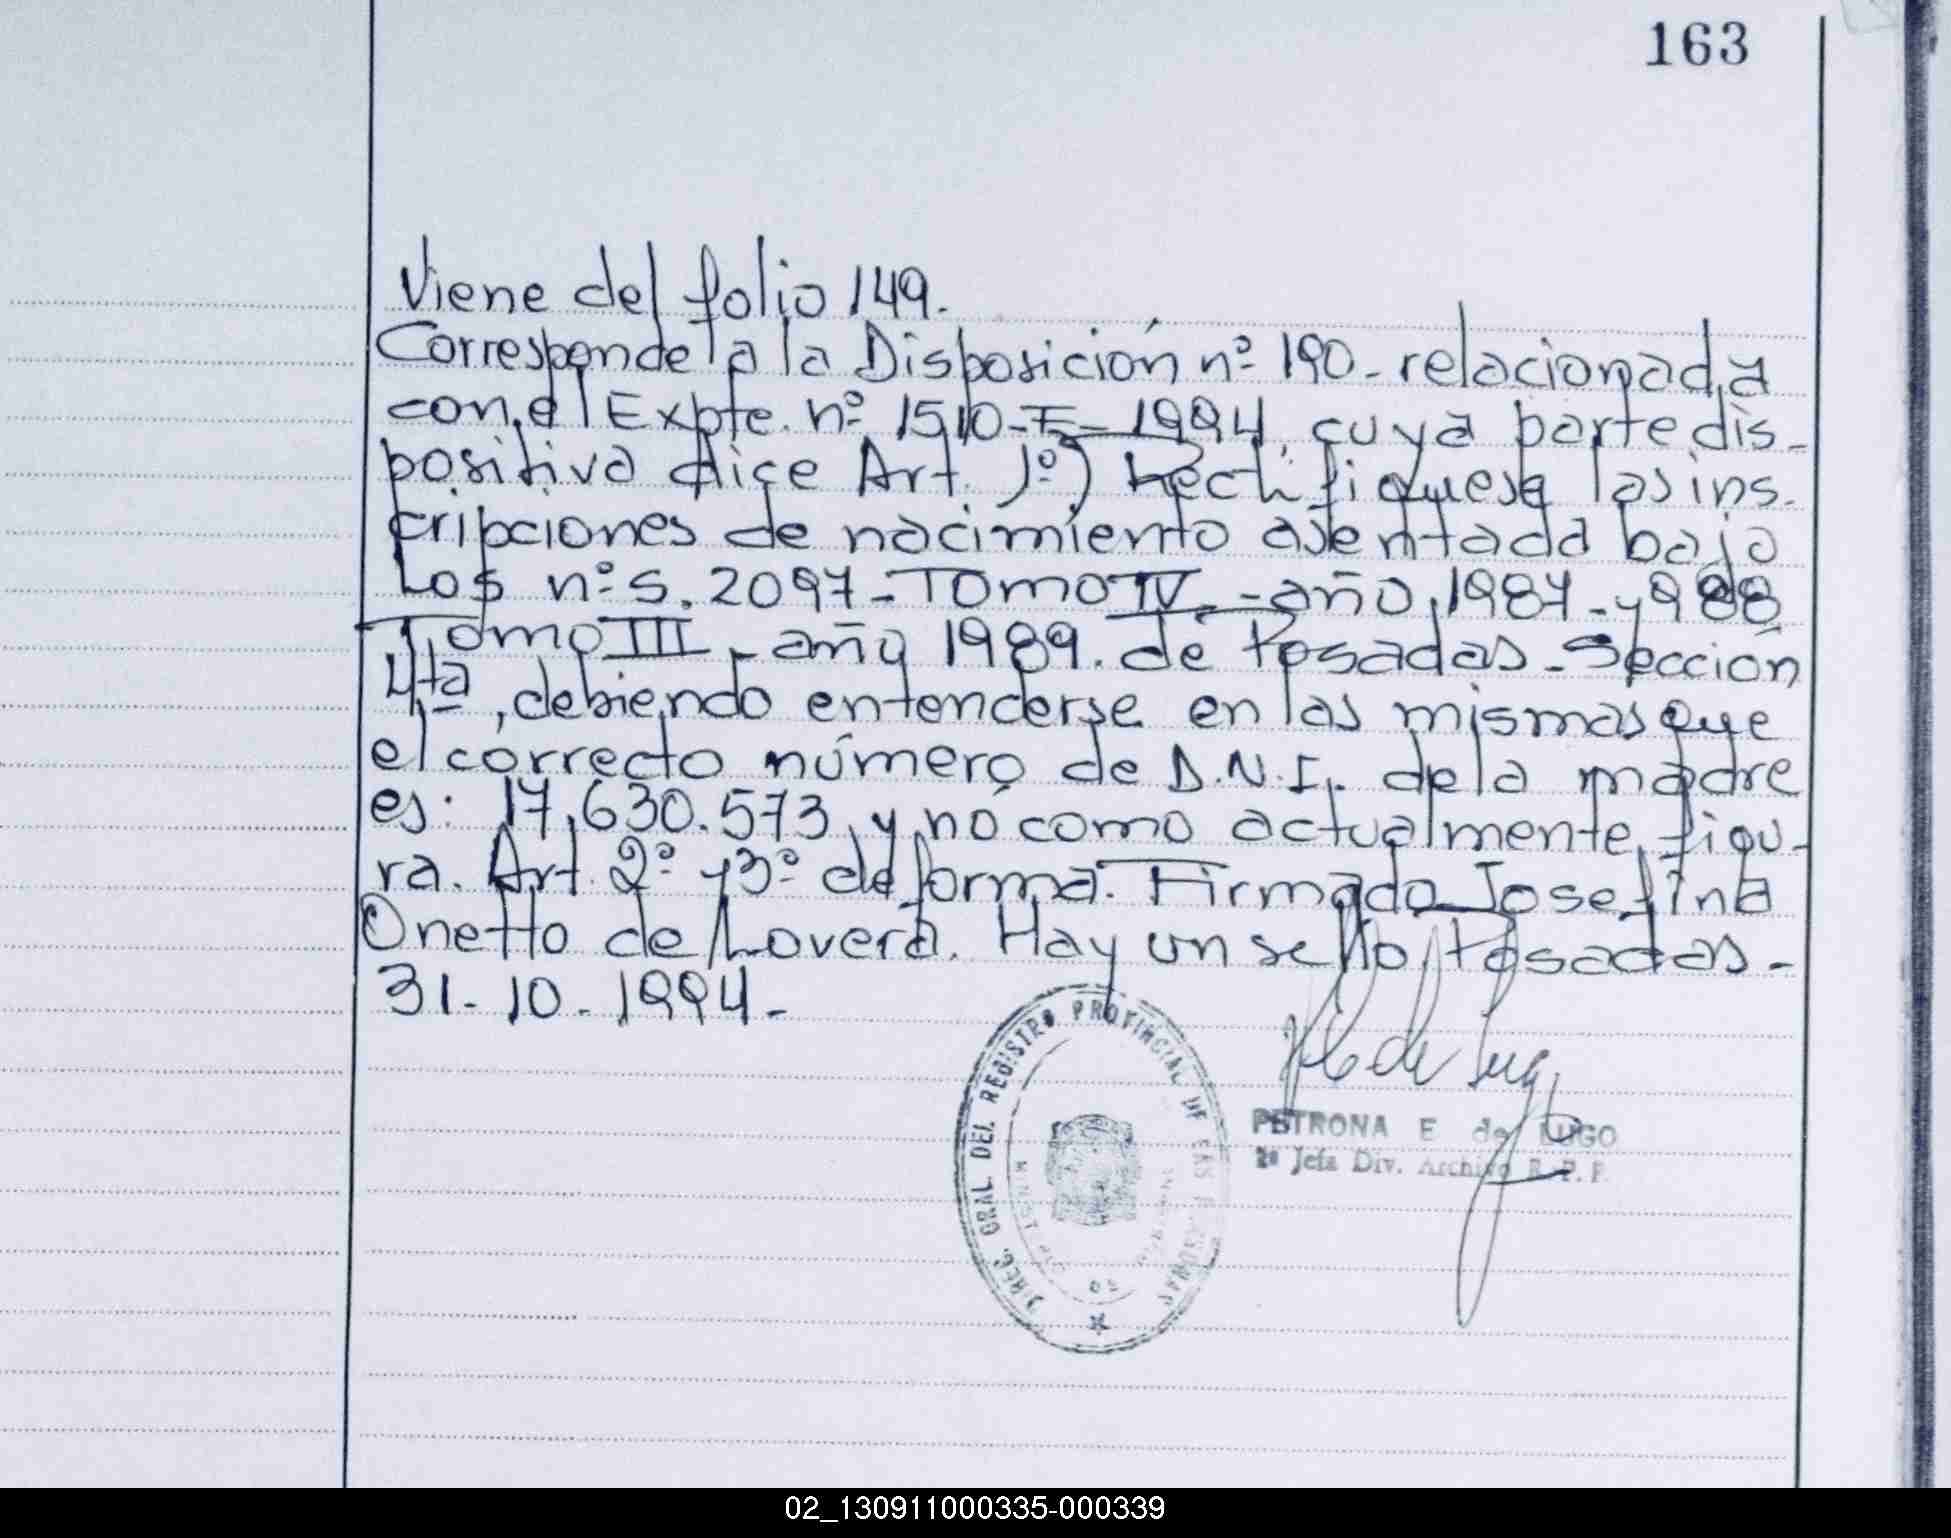 163
Viene del folio 149.
Corresponde a la Disposición nº 190- relacionada
con el Expte. nº 1510-F-1994, cuya parte dis-
positiva dice Art. 1º) Rectifiquese las ins-
cripciones de nacimiento asentada bajo
Los nºs. 2097- Tomo IV.- año 1987- y 988
Tomo III - año 1989. de Posadas- Sección
4ta, debiendo entenderse en las mismas que
el correcto número de D.N.I. de la madre
es: 17.630.573 y no como actualmente figu-
ra. Art. 2º y 3º de forma. Firmado Josefina
Onetto de Lovera. Hay un sello Posadas-
31-10-1994-
DIREC. GRAL DEL REGISTRO PROVINCIAL DE LAS PERSONAS
PETRONA E de LUGO
2ª Jefa Div. Archivo R.P.P.
02_130911000335-000339